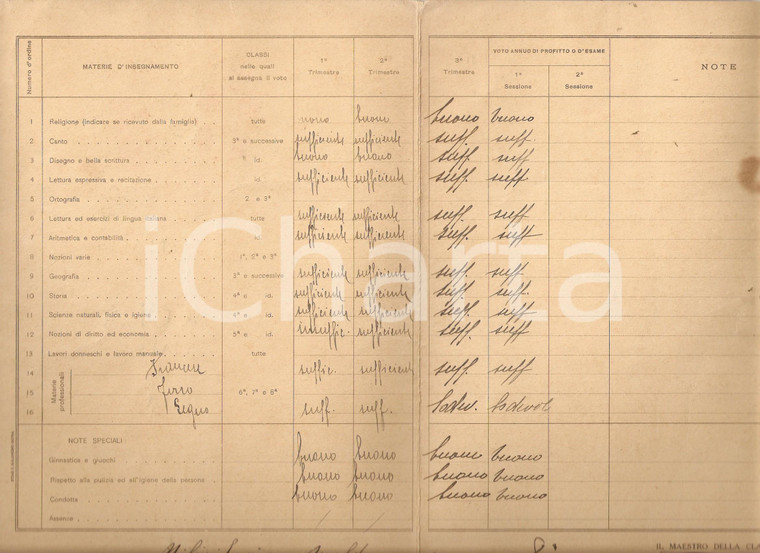 Numero d'ordine MATERIE D'INSEGNAMENTO CLASSI nelle quali si assegna il voto 1° Trimestre 2° Trimestre 3° Trimestre VOTO ANNUO DI PROFITTO O D'ESAME 1ª Sessione 2ª Sessione NOTE
1 Religione (indicare se ricevuta dalla famiglia) tutte buono buono buono
2 Canto 3ª e successive sufficiente sufficiente suff. suff
3 Disegno e bella scrittura id. buono buono suff. suff
4 Lettura espressiva e recitazione id. sufficiente sufficiente suff. suff
5 Ortografia 2 e 3ª
6 Lettura ed esercizi di lingua italiana tutte sufficiente sufficiente suff. suff
7 Aritmetica e contabilità id. sufficiente sufficiente suff. suff
8 Nozioni varie 1ª, 2ª e 3ª
9 Geografia 3ª e successive sufficiente sufficiente suff. suff
10 Storia 4ª e id. sufficiente sufficiente suff. suff.
11 Scienze naturali, fisica e igiene 4ª e id. sufficiente sufficiente suff. suff
12 Nozioni di diritto ed economia 5ª e id. suffic. sufficiente suff. suff
13 Lavori donneschi e lavoro manuale tutte
14 Materie professionali suffic. sufficiente suff. suff
15 Ferro 6ª, 7ª e 8ª
16 Legno suff. suff. Lodev. Lodevole
NOTE SPECIALI:
Ginnastica e giuochi buono buono buono buono
Rispetto alla pulizia ed all'igiene della persona buono buono buono buono
Condotta buono buono buono buono
Assenze / /
IL MAESTRO DELLA CLA
iCharta